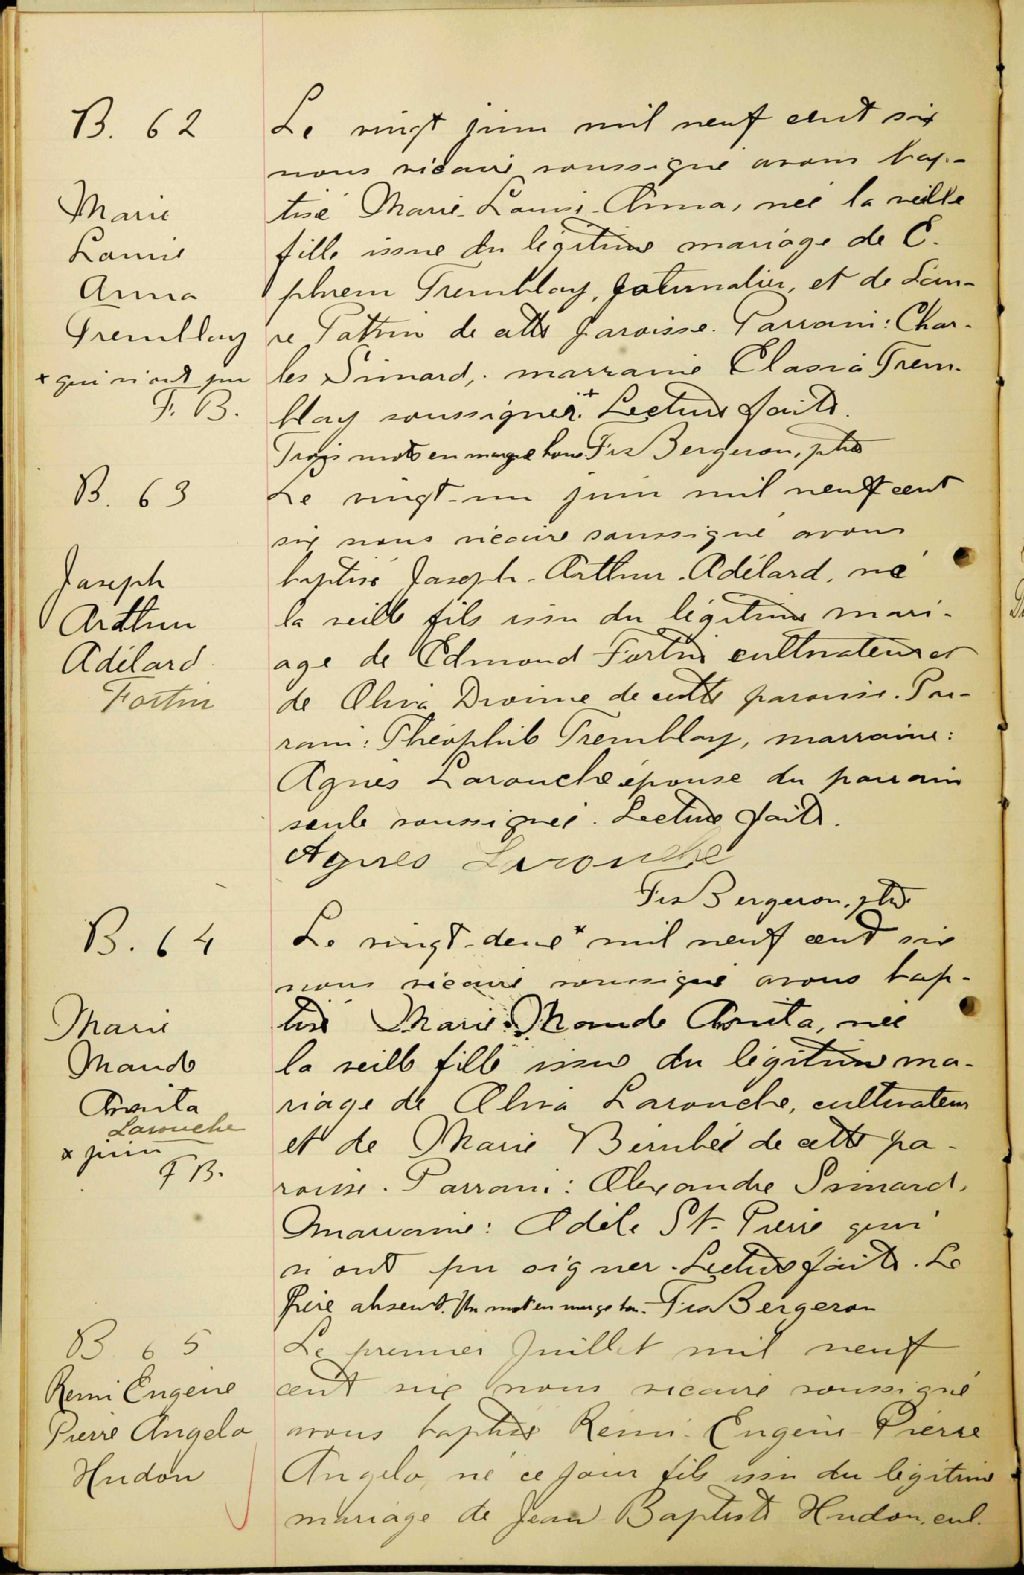 B. 62
Marie
Louise
Anna
Tremblay
+ qui n'ont pu
F. B.
Le vingt juin mil neuf cent six
nous vicaire soussigné avons bap-
tisé Marie-Louise-Anna, née la veille
fille issue du légitime mariage de E-
phrem Tremblay, journalier, et de Lau-
re de cette paroisse. Parrain: Char-
les Simard, marraine Trem-
blay soussigner.+ Lecture faite.
Trois mots en marge bons Frs Bergeron, ptre
B. 63
Joseph
Arthur
Adélard
Fortin
Le vingt-un juin mil neuf cent
six nous vicaire soussigné avons
baptisé Joseph-Arthur-Adélard, né
la veille fils issu du légitime mari-
age de Edmond Fortin cultivateur et
de Oliva de cette paroisse. Par-
rain: Théophile Tremblay, marraine:
Agnès Larouche épouse du parrain
seule soussignée. Lecture faite.
Agnes Larouche
Frs Bergeron, ptre
B. 64
Marie
Maude
Anita
Larouche
x juin
F B.
Le vingt-deux x mil neuf cent six
nous vicaire soussigné avons bap-
tisé Marie-Maude Anita, née
la veille fille issue du légitime ma-
riage de Oliva Larouche, cultivateur
et de Marie Bérubé de cette pa-
roisse. Parrain: Alexandre Simard,
Marraine: Adèle St-Pierre qui
n'ont pu signer. Lecture faite. Le
Père absent. Un mot en marge bon. Frs Bergeron
B 65
Remi Eugène
Pierre Angelo
Hudon
Le premier Juillet mil neuf
cent six nous vicaire soussigné
avons baptisé Rémi-Eugène-Pierre
Angelo, né ce jour fils issu du légitime
mariage de Jean Baptiste Hudon, cul.